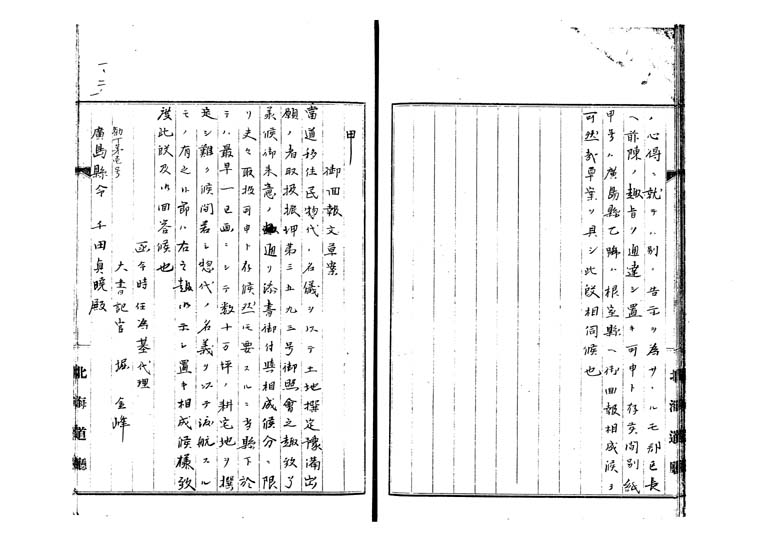 、心得、就テハ別ノ告示ヲ為サヾルモ郡区長
ヘ前陳ノ趣旨ヲ通達シ置キ可申ト存候間別紙
甲号ハ廣島縣乙号ハ根室縣ヘ御回報相成候ヨ
可然哉草案ヲ具シ此段相伺候也
北海道廳
一、二
甲
御回報文草案
當道移住民物代ノ名儀ヲ以テ土地撰定豫備出
願ノ者取扱振坤第三五九三号御照會之趣致了
義候御来意ノ趣通リ添書御付與相成候分ニ限
リ夫々取扱可申ト存候然ルニ要スルニ貴縣下ニ於
テハ最早一已画ニシテ数十万坪ノ耕宅地ヲ撰
定シ難ク候間若シ惣代ノ名義ヲ以テ渡航スル
モノ有之候節ハ右之趣御示シ置キ相成候様致
度此段及御回答候也
函令時任為基代理
大書記官 堀 金峰
勧丁第壱号
廣島縣令 千田貞暁殿
北海道廳